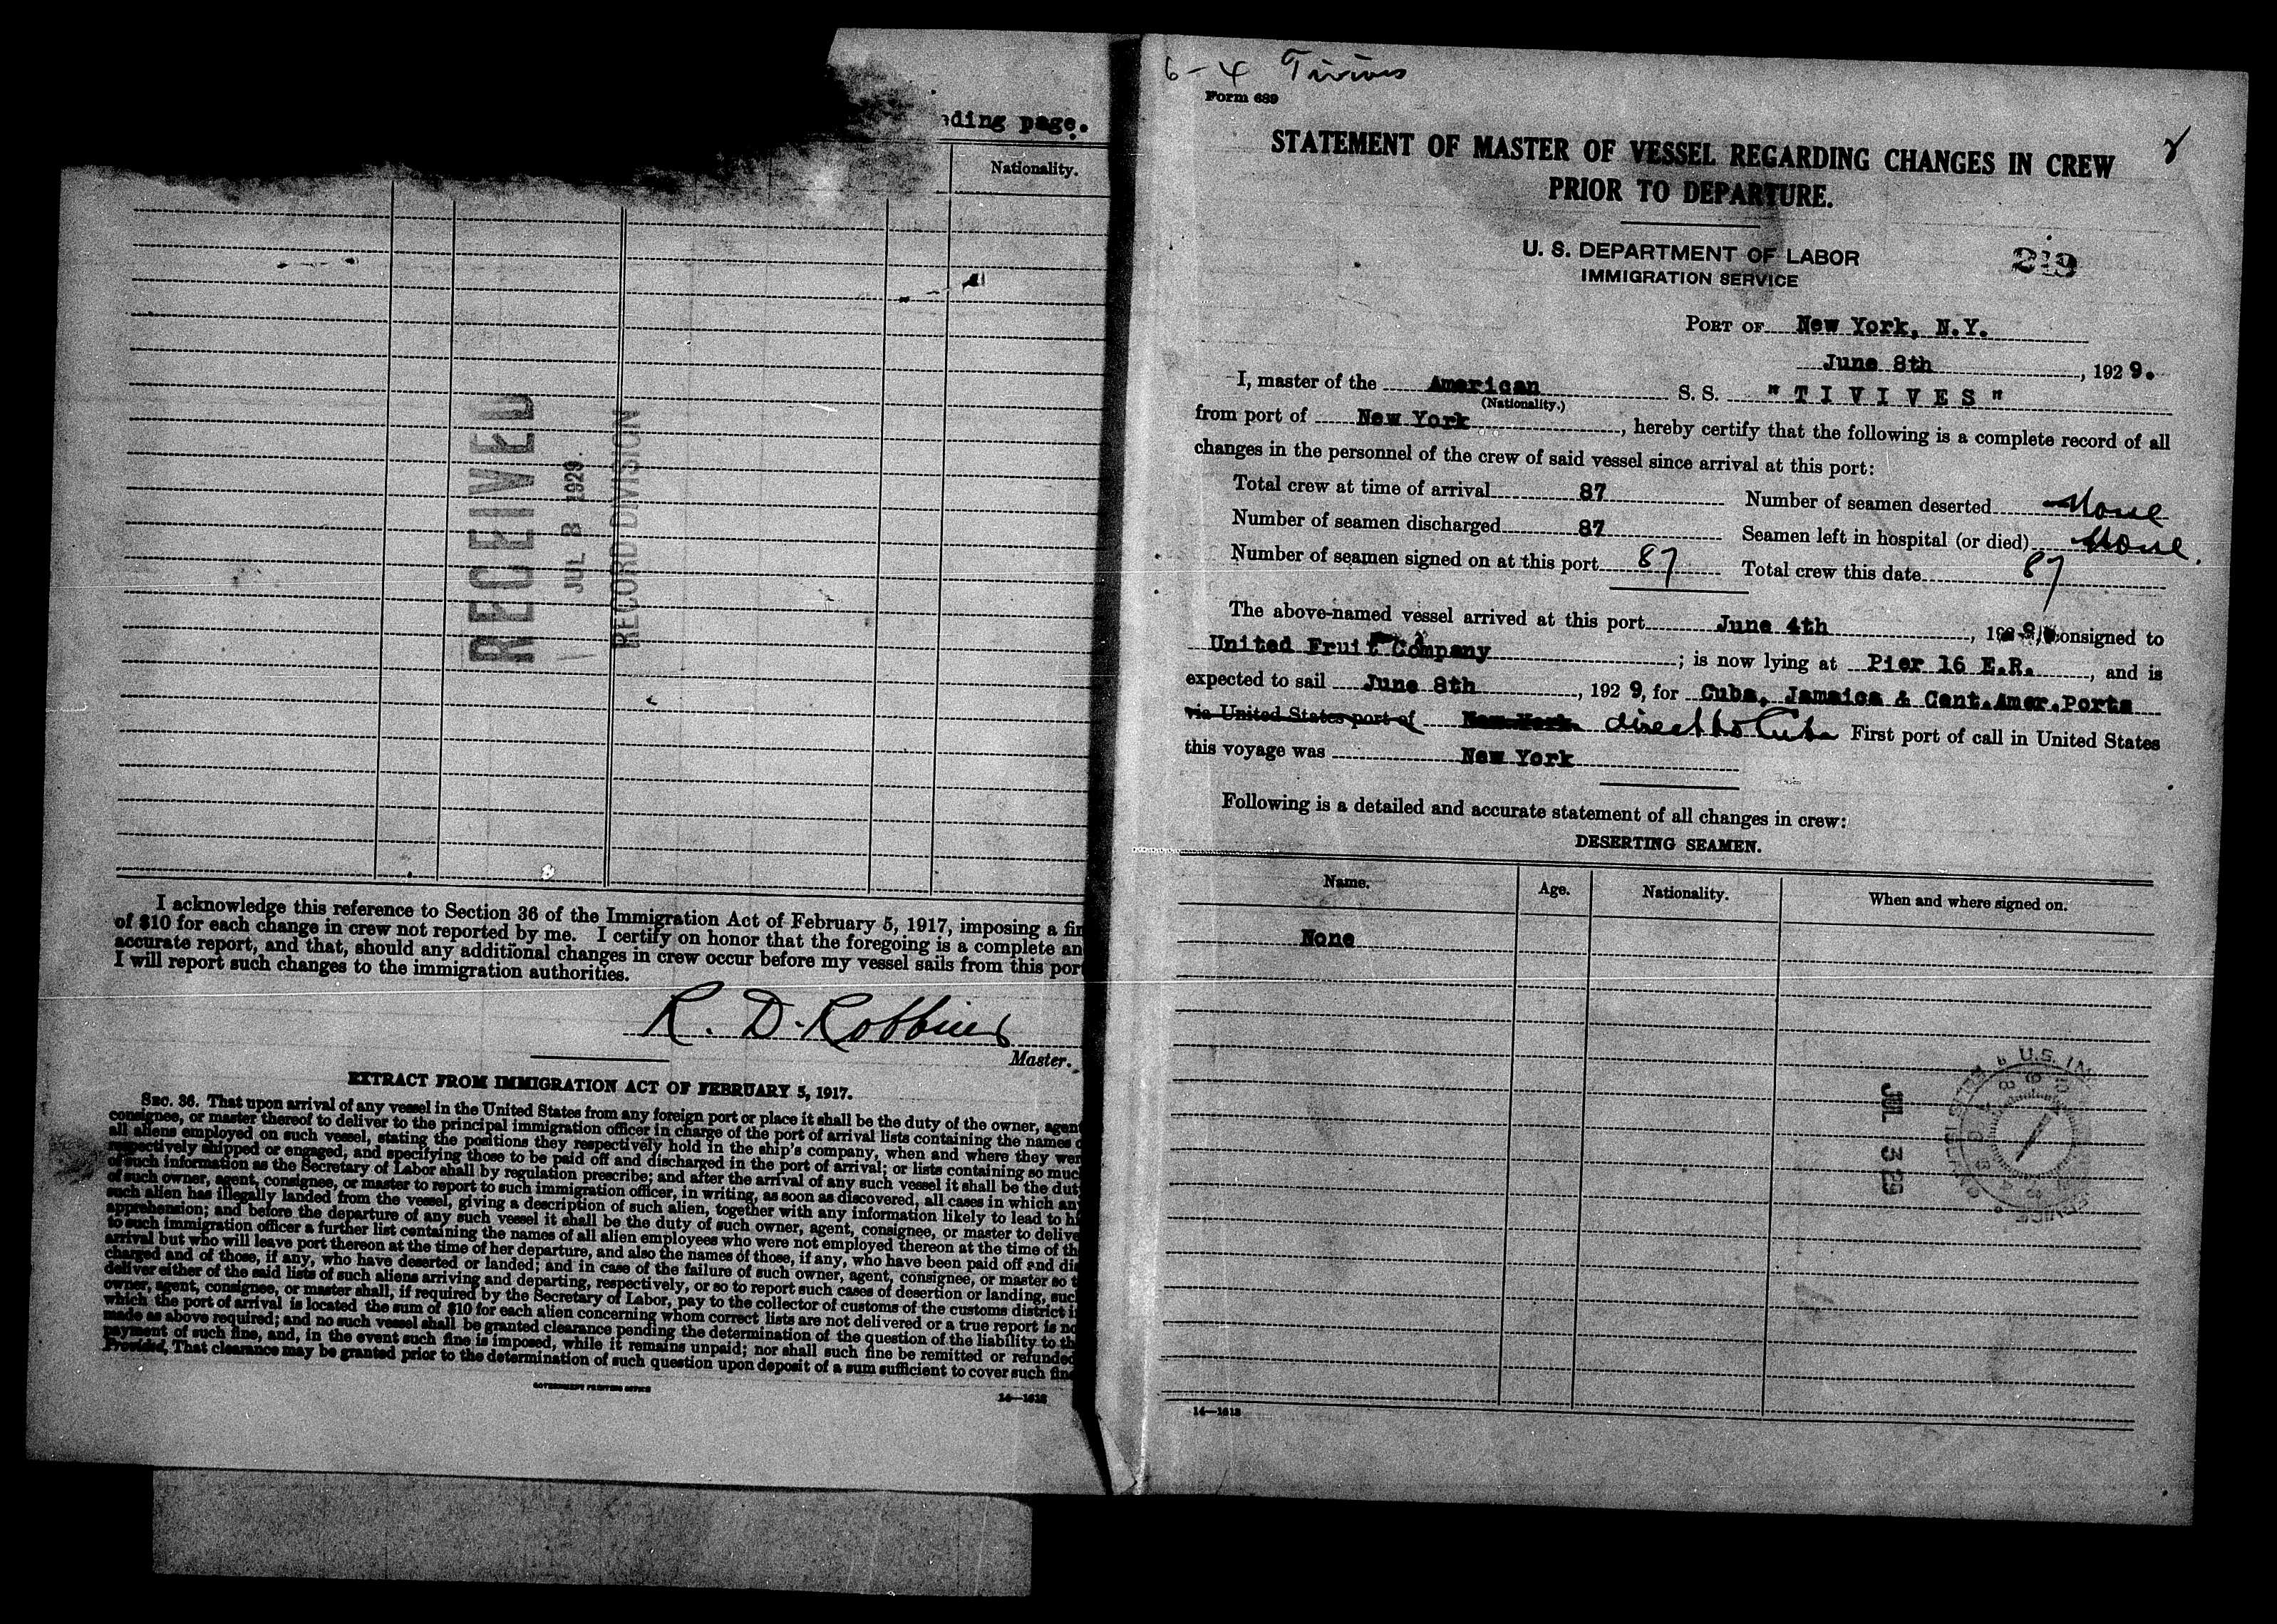 ding page.
Nationality.
RECEIVED
JUL 8 1929.
RECORD DIVISION
I acknowledge this reference to Section 36 of the Immigration Act of February 5, 1917, imposing a fin
of $10 for each change in crew not reported by me. I certify on honor that the foregoing is a complete an
accurate report, and that, should any additional changes in crew occur before my vessel sails from this por
I will report such changes to the immigration authorities.
R. D. Robbins
Master.
EXTRACT FROM IMMIGRATION ACT OF FEBRUARY 5, 1917.
SEC. 36. That upon arrival of any vessel in the United States from any foreign port or place it shall be the duty of the owner, agent
consignee, or master thereof to deliver to the principal immigration officer in charge of the port of arrival lists containing the names o
all aliens employed on such vessel, stating the positions they respectively hold in the ship's company, when and where they wer
respectively shipped or engaged, and specifying those to be paid off and discharged in the port of arrival; or lists containing so muc
of such information as the Secretary of Labor shall by regulation prescribe; and after the arrival of any such vessel it shall be the dut
of such owner, agent, consignee, or master to report to such immigration officer, in writing, as soon as discovered, all cases in which an
such alien has illegally landed from the vessel, giving a description of such alien, together with any information likely to lead to hi
apprehension; and before the departure of any such vessel it shall be the duty of such owner, agent, consignee, or master to delive
to such immigration officer a further list containing the names of all alien employees who were not employed thereon at the time of th
arrival but who will leave port thereon at the time of her departure, and also the names of those, if any, who have been paid off and dis
charged and of those, if any, who have deserted or landed; and in case of the failure of such owner, agent, consignee, or master so t
deliver either of the said lists of such aliens arriving and departing, respectively, or so to report such cases of desertion or landing, suc
owner, agent, consignee, or master shall, if required by the Secretary of Labor, pay to the collector of customs of the customs district i
which the port of arrival is located the sum of $10 for each alien concerning whom correct lists are not delivered or a true report is no
made as above required; and no such vessel shall be granted clearance pending the determination of the question of the liability to th
payment of such fine, and, in the event such fine is imposed, while it remains unpaid; nor shall such fine be remitted or refunded
Provided, That clearance may be granted prior to the determination of such question upon deposit of a sum sufficient to cover such fine
GOVERNMENT PRINTING OFFICE
14—1618
6-4 Tivives
Form 689
STATEMENT OF MASTER OF VESSEL REGARDING CHANGES IN CREW
PRIOR TO DEPARTURE.
U. S. DEPARTMENT OF LABOR
IMMIGRATION SERVICE
219
PORT OF New York, N.Y.
June 8th, 1929.
I, master of the American S. S. "TIVIVES"
(Nationality.)
from port of New York, hereby certify that the following is a complete record of all
changes in the personnel of the crew of said vessel since arrival at this port:
Total crew at time of arrival 87 Number of seamen deserted None
Number of seamen discharged 87 Seamen left in hospital (or died) None
Number of seamen signed on at this port 87 Total crew this date 87
The above-named vessel arrived at this port June 4th, 1929, consigned to
United Fruit Company; is now lying at Pier 16 E.R., and is
expected to sail June 8th, 1929, for Cuba, Jamaica & Cent.Amer.Ports
via United States port of New York direct to Cuba First port of call in United States
this voyage was New York
Following is a detailed and accurate statement of all changes in crew:
DESERTING SEAMEN.
Name. Age. Nationality. When and where signed on.
None
JUL 3 29
14—1618